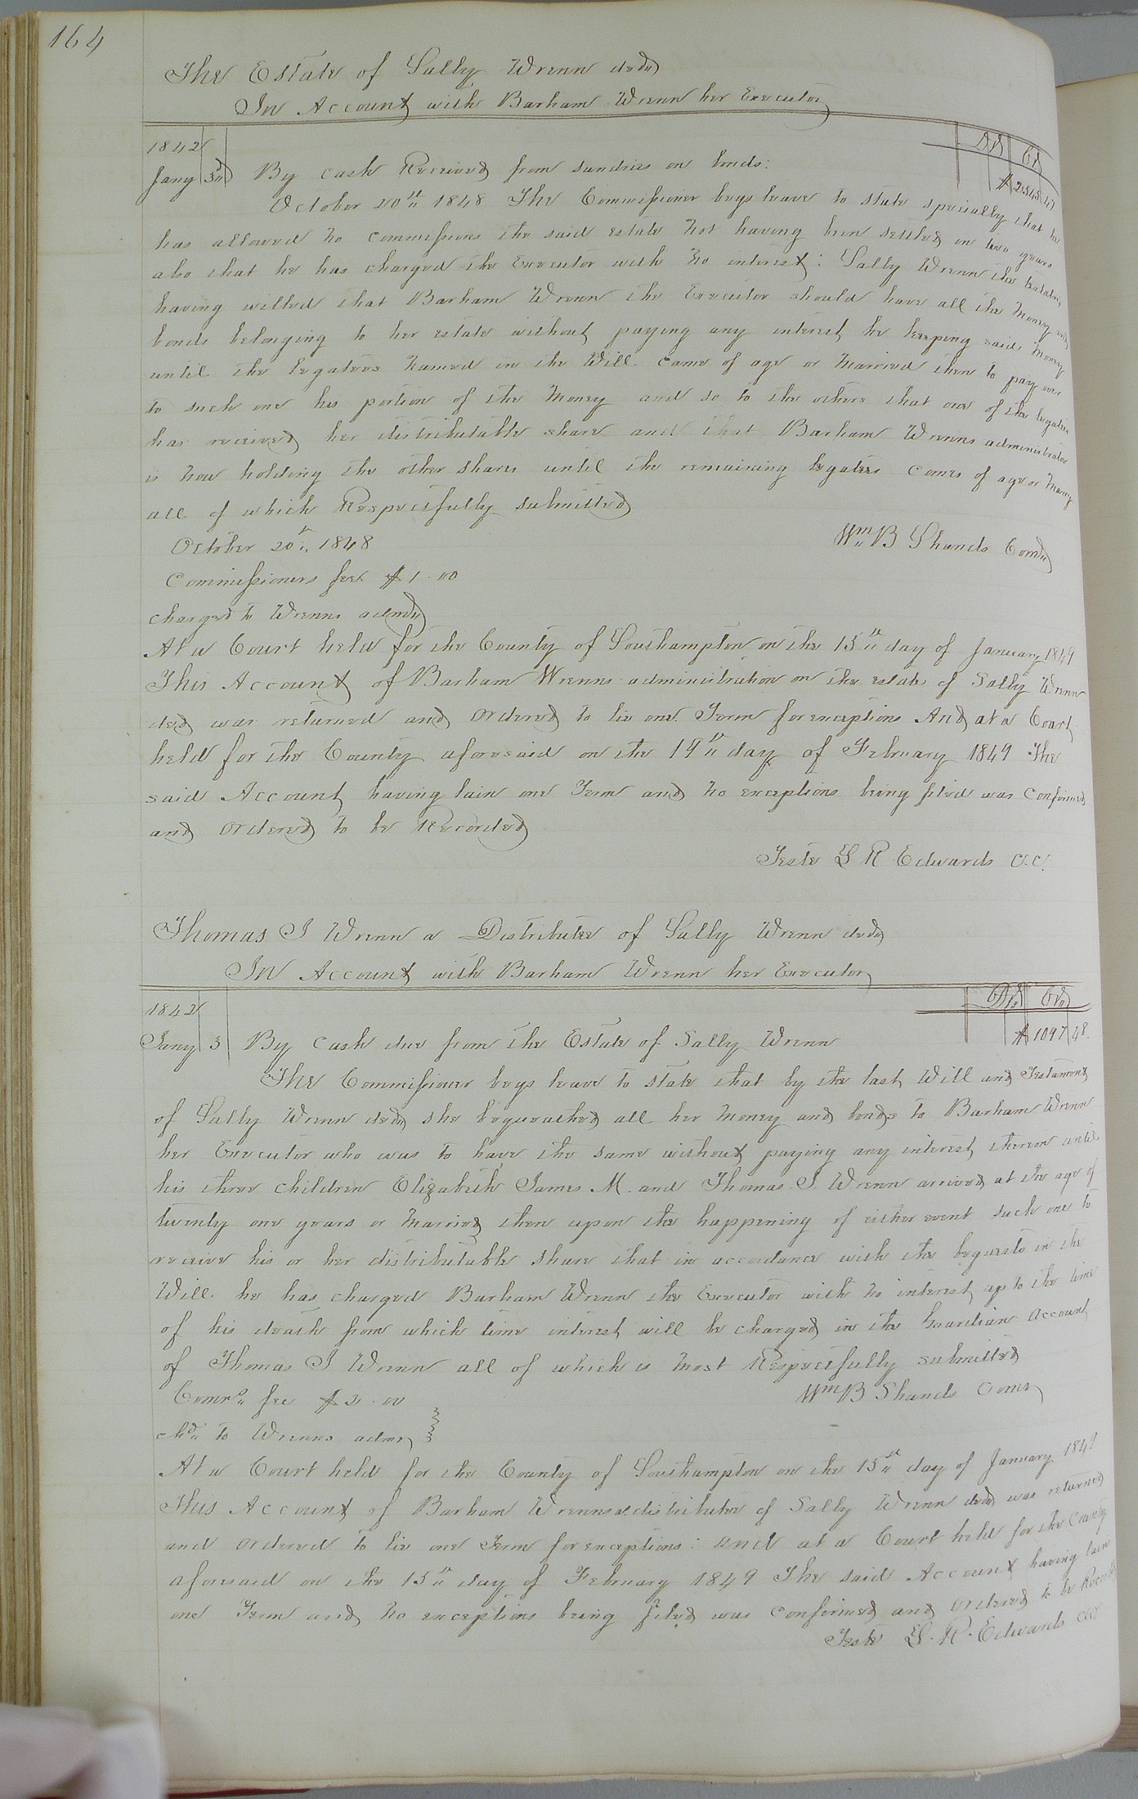 164
The Estate of Sally Wrenn decd
In Account with Barham Wrenn her Executor
1842 Dr Cr
Jany 3d By cash Received from sundries on bonds:
October 20th 1848 The Commissioner begs leave to state specially that he
has allowed no commissions the said estate not having been settled in two years
also that he has charged the Executor with no interest: Sally Wrenn the testatrix
having willed that Barham Wrenn the Executor should have all the money and
bonds belonging to her estate without paying any interest he keeping said money
until the legatees named in the Will came of age or married then to pay over
to such one his portion of the money and so to the others that one of the legatees
has received her distributable share and that Barham Wrenns administrator
is now holding the other shares until the remaining legatees comes of age or marry
all of which Respectfully submitted
October 20th 1848 Wm B Shands Comr
Commissioners fee $1.00
charged to Wrenns admr
At a Court held for the County of Southampton on the 15th day of January 1849
This Account of Barham Wrenns administration on the estate of Sally Wrenn
decd was returned and Ordered to lie one Term for exceptions And at a Court
held for the County aforesaid on the 19th day of February 1849 The
said Account having lain one Term and no exceptions being filed was confirmed
and Ordered to be Recorded
Teste L R Edwards C.C.
Thomas J Wrenn a Distributee of Sally Wrenn decd
In Account with Barham Wrenn her Executor
1842 Drs Crs
Jany 3 By Cash due from the Estate of Sally Wrenn $1097 48
The Commissioner begs leave to state that by the last Will and Testament
of Sally Wrenn decd she bequeathed all her money and bonds to Barham Wrenn
her Executor who was to have the same without paying any interest thereon until
his three children Elizabeth James M. and Thomas J. Wrenn arrived at the age of
twenty one years or married then upon the happening of either event such one to
receive his or her distributable share that in accordance with the bequests in the
Will he has charged Barham Wrenn the Executor with no interest up to the time
of his death from which time interest will be charged in the Guardian Account
of Thomas J Wrenn all of which is most Respectfully submitted
Comrs fee $2.00 Wm B Shands Comr
chd to Wrenns admr
At a Court held for the County of Southampton on the 15th day of January 1849
This Account of Barham Wrenns distributee of Sally Wrenn decd was returned
and Ordered to lie one Term for exceptions: And at a Court held for the County
aforesaid on the 15th day of February 1849 The said Account having lain
one Term and no exceptions being filed was confirmed and Ordered to be Recorded
Teste L. R. Edwards CC